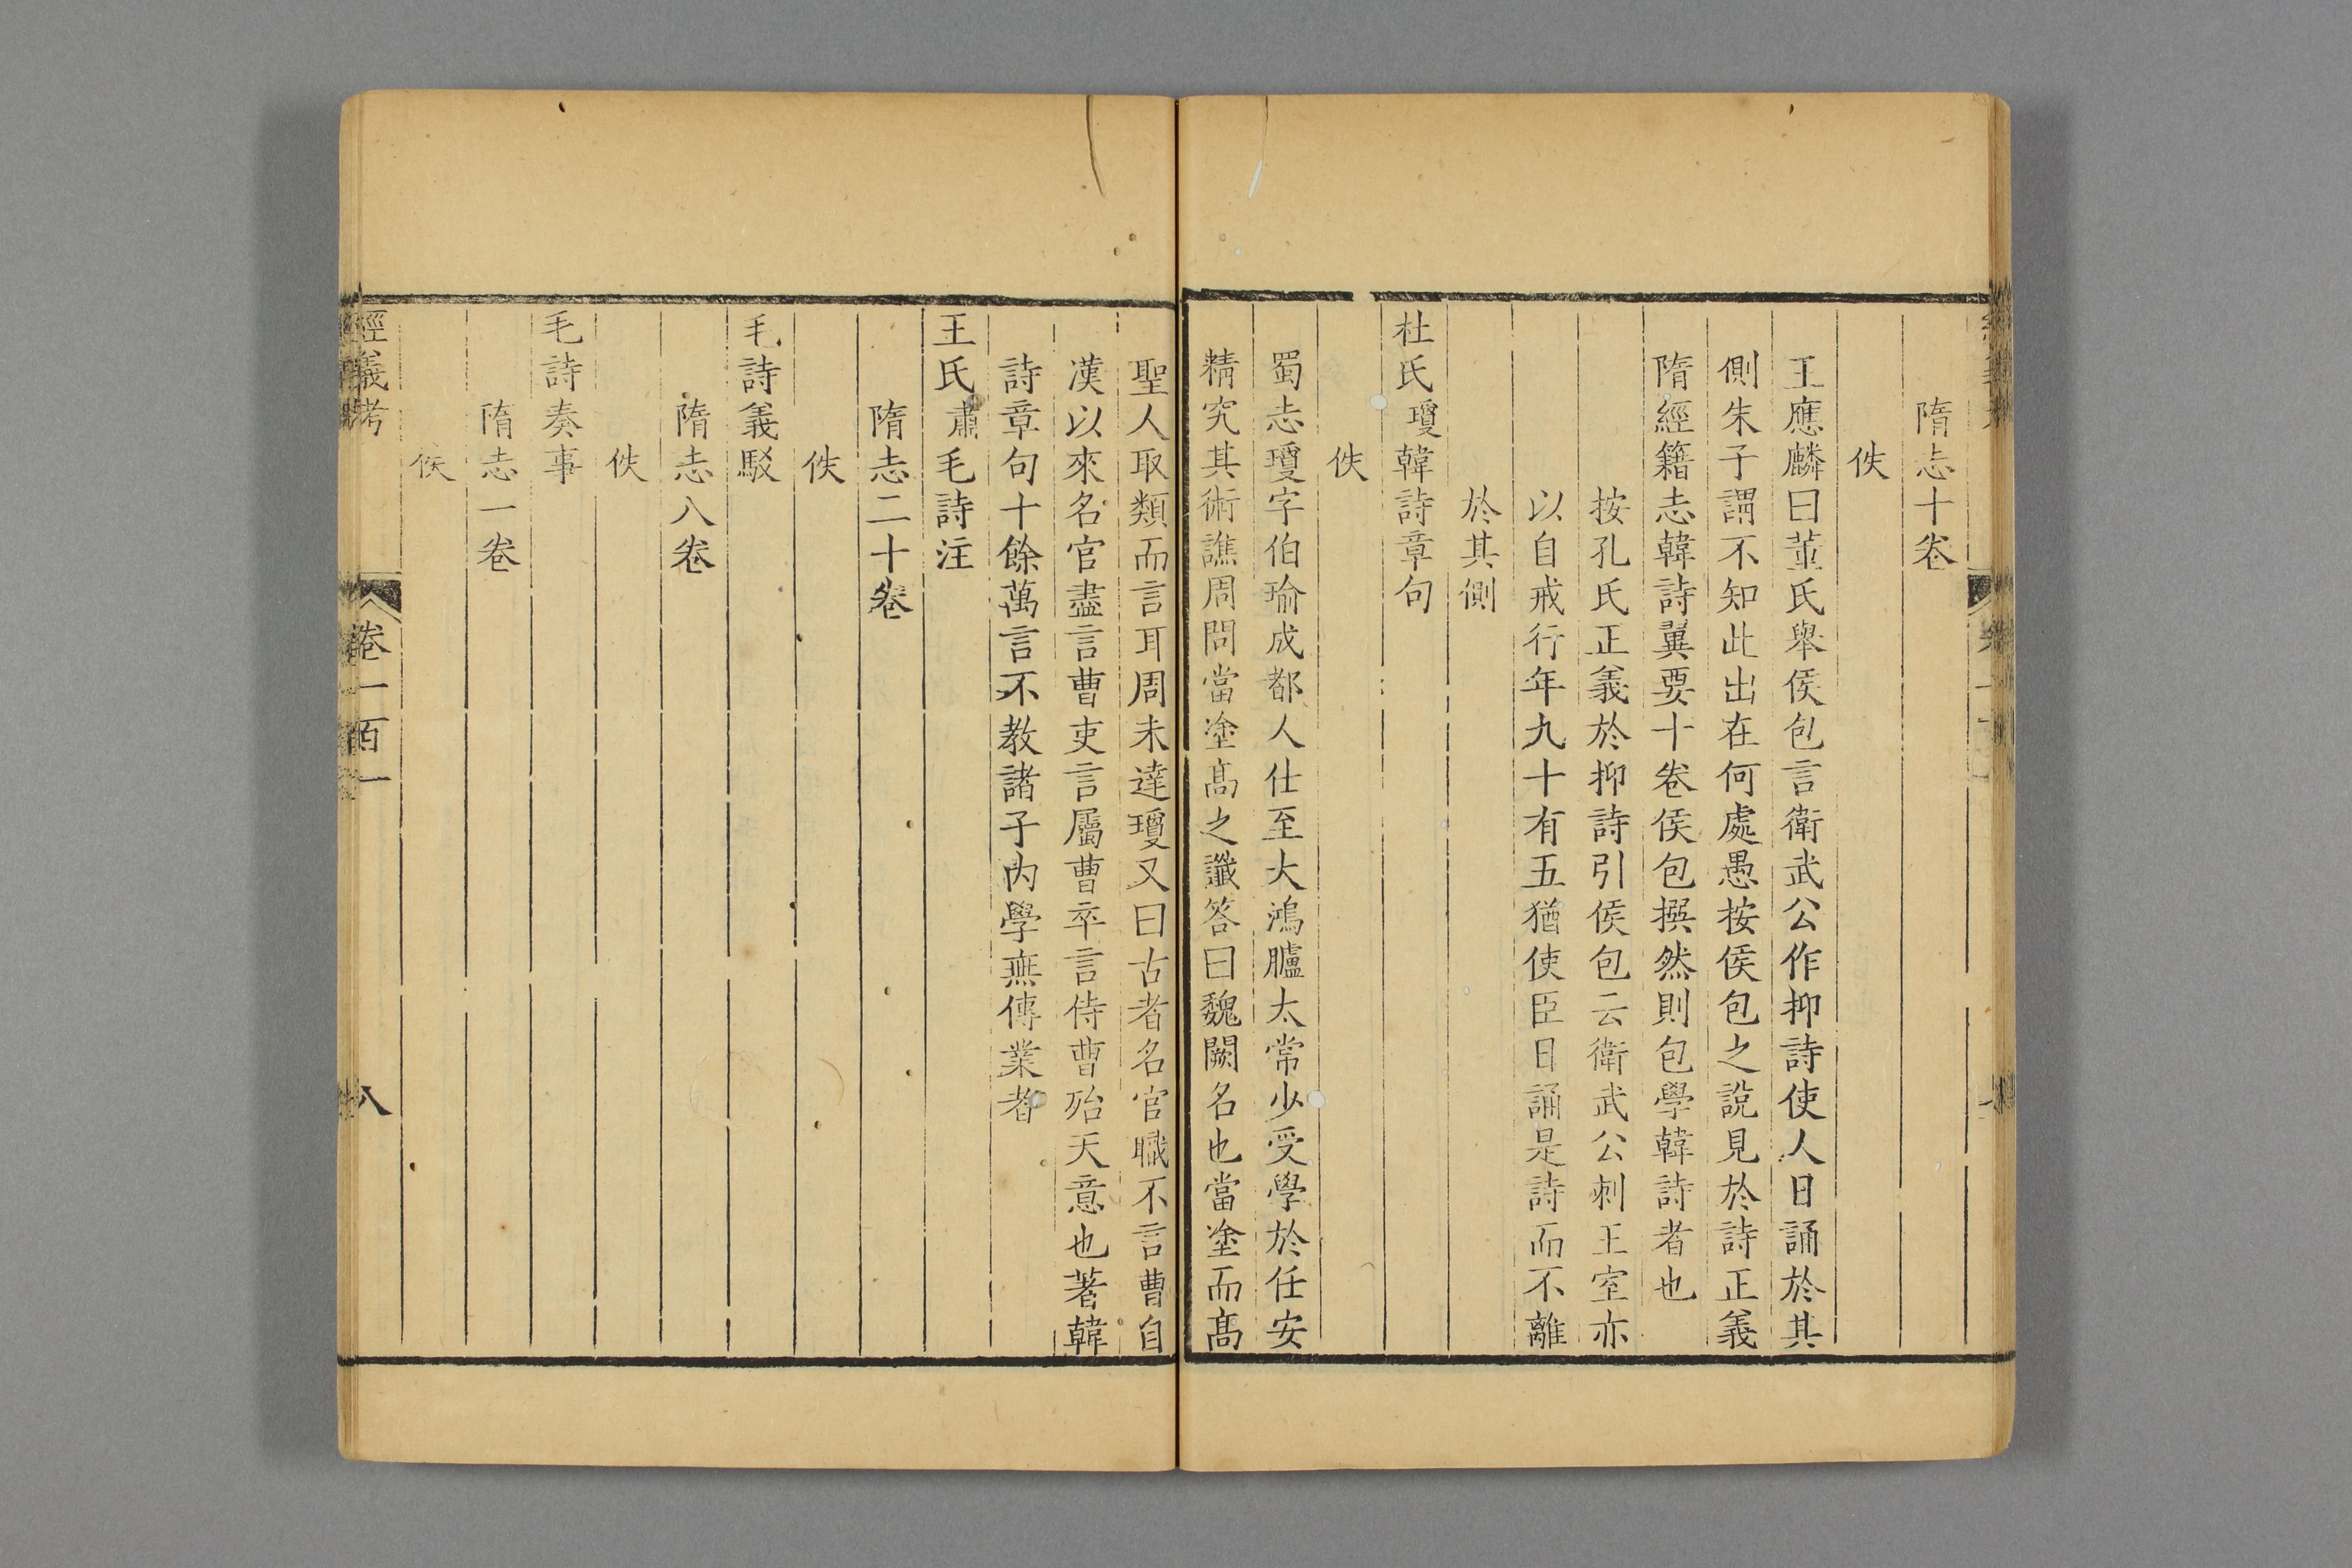 隋志十卷
佚
王應麟曰董氏舉侯包言衛武公作抑詩使人日誦於其
側朱子謂不知此出在何處愚按侯包之說見於詩正義
隋經籍志韓詩翼要十卷侯包撰然則包學韓詩者也
按孔氏正義於抑詩引侯包云衛武公刺王室亦
以自戒行年九十有五猶使臣日誦是詩而不離
於其側
杜氏瓊韓詩章句
佚
蜀志瓊字伯瑜成都人仕至大鴻臚太常少受學於任安
精究其術譙周問當塗高之讖答曰魏闕名也當塗而高
聖人取類而言耳周未達瓊又曰古者名官職不言曹自
漢以來名官盡言曹吏言屬曹卒言侍曹殆天意也著韓
詩章句十餘萬言不教諸子內學無傳業者
王氏肅毛詩注
隋志二十卷
佚
毛詩義駁
隋志八卷
佚
毛詩奏事
隋志一卷
佚
經義考 卷一百一 八